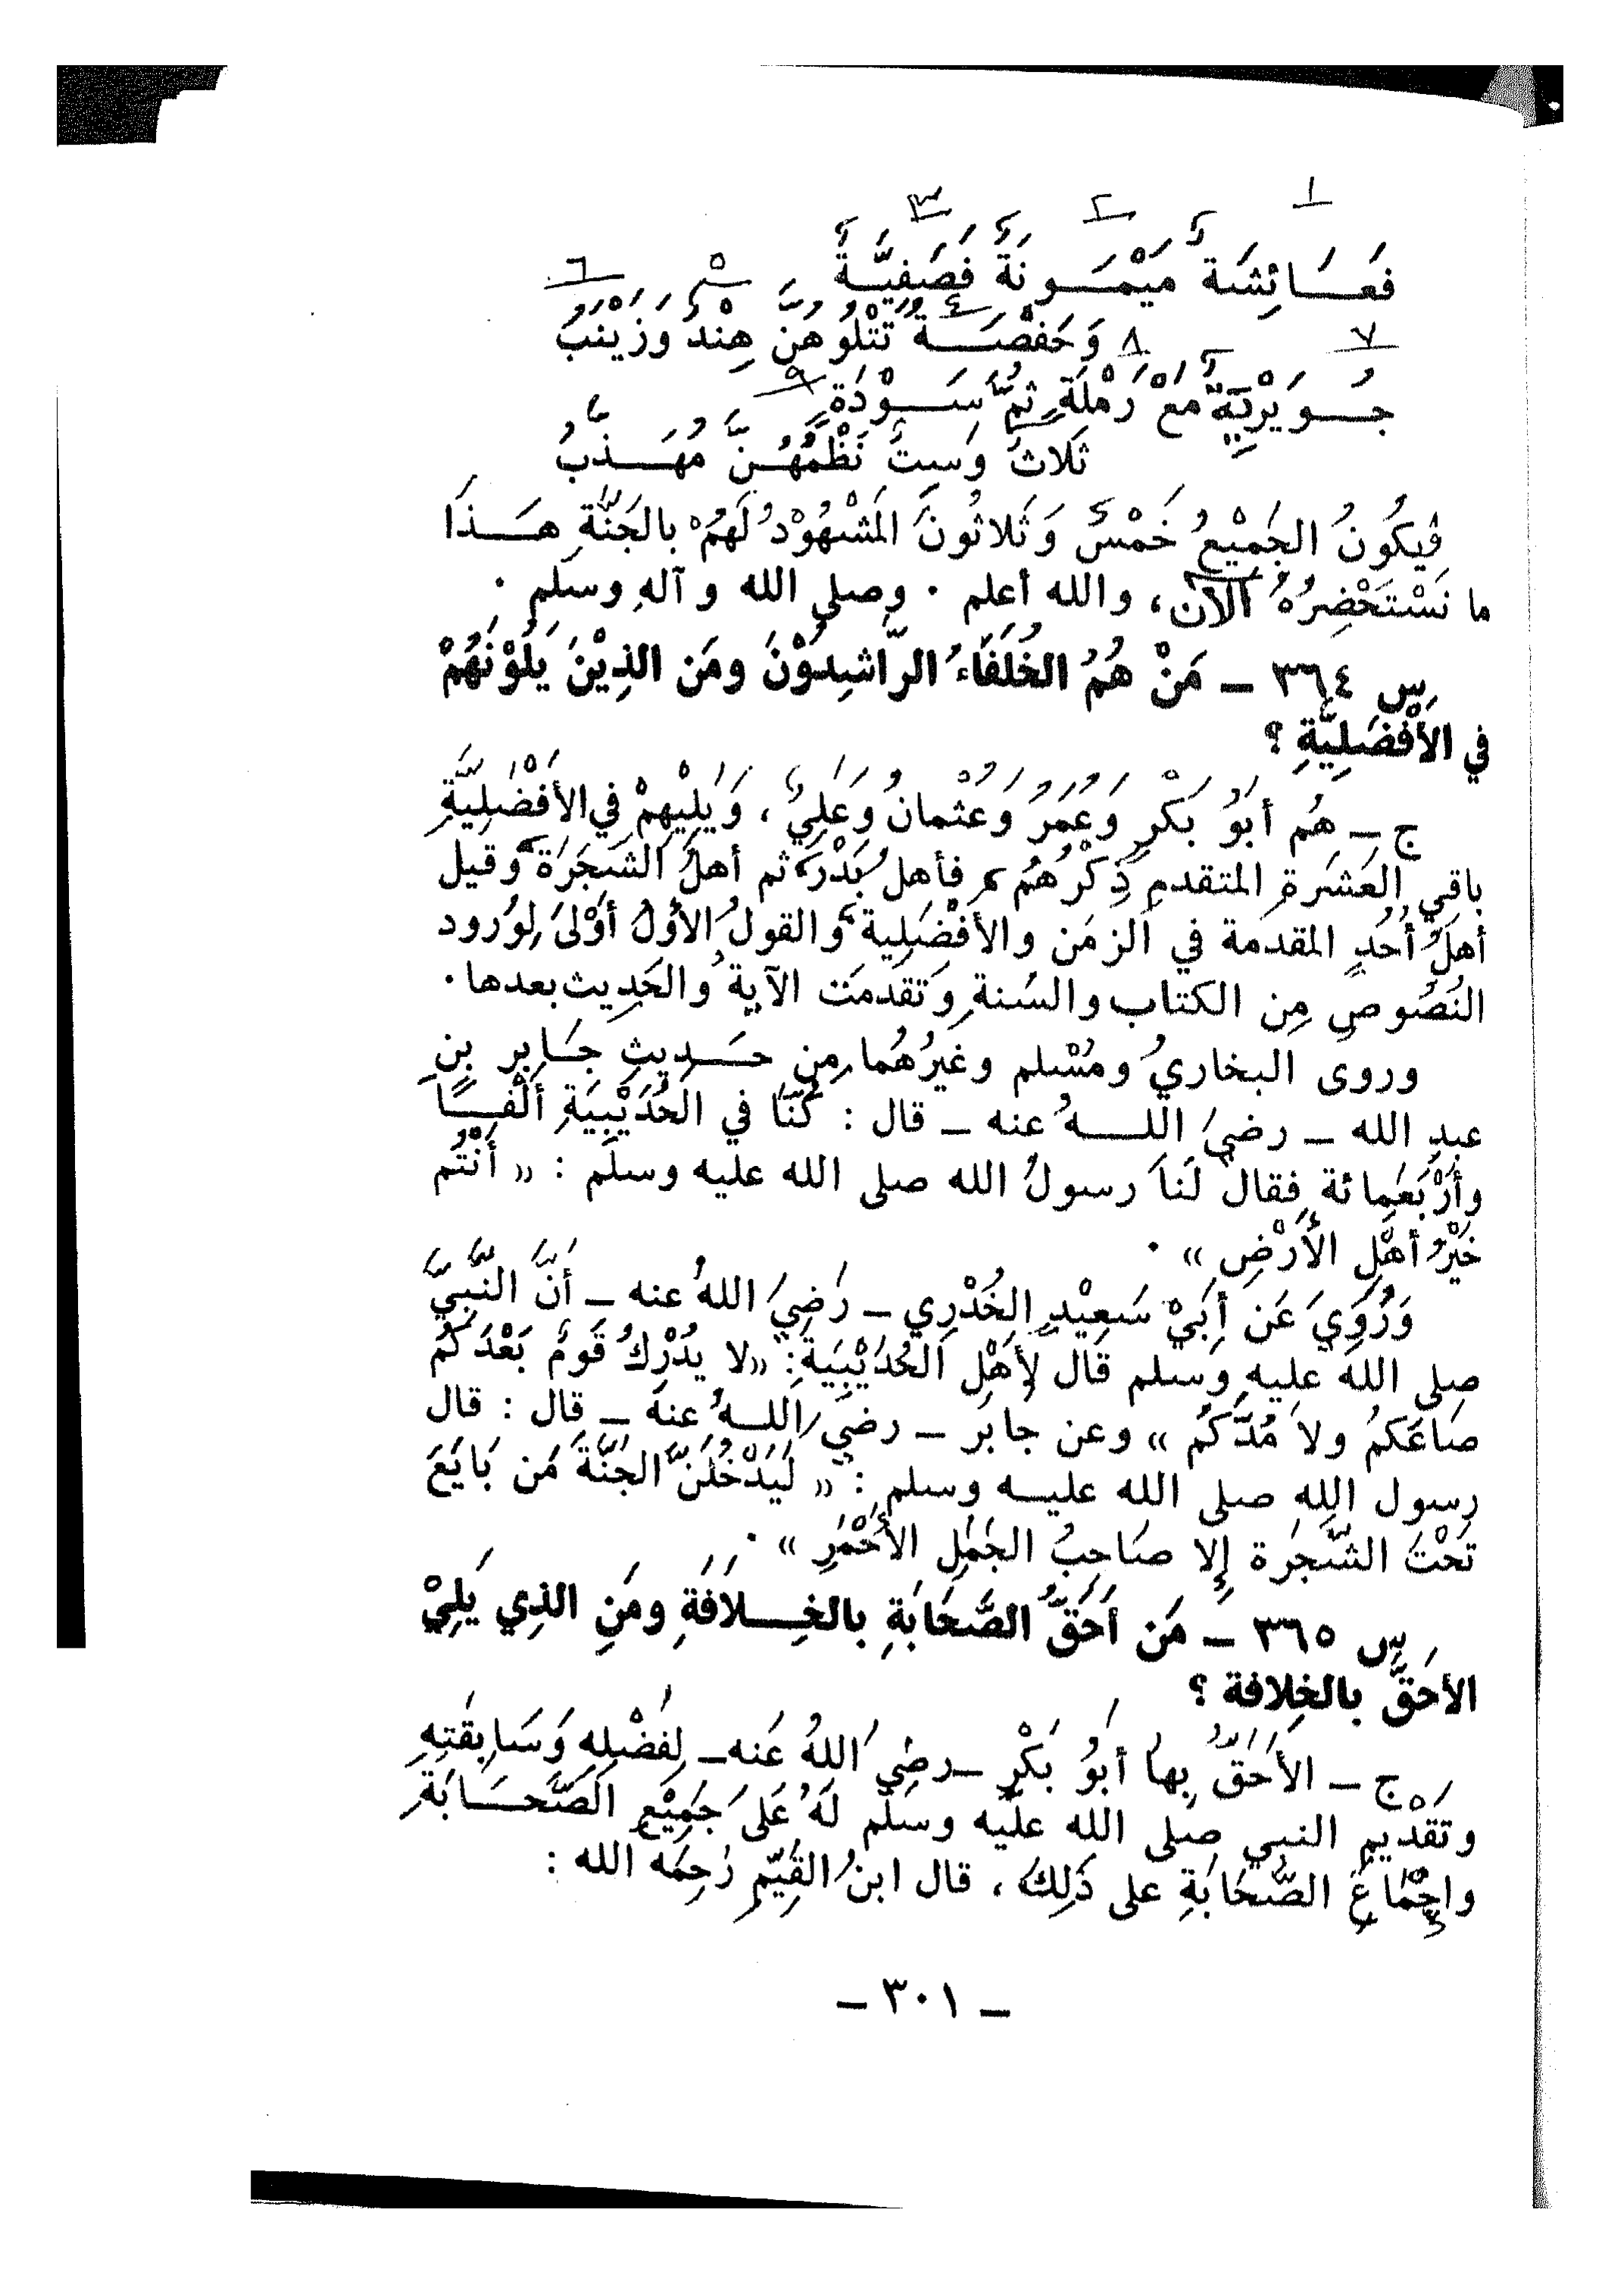 ١ ٢ ٣
فَعَائِشَةٌ مَيْمُونَةٌ فَصَفِيَّةٌ
٤ ٥ ٦
وَحَفْصَةٌ تَتْلُوهُنَّ هِنْدٌ وَزَيْنَبُ
٧ ٨ ٩
جُوَيْرِيَةٌ مَعْ رَمْلَةٍ ثُمَّ سَوْدَةٍ
ثَلاثٌ وَسِتٌ نَظْمُهُنَّ مُهَذَّبُ
فَيَكُونُ الجَمِيْعُ خَمْسٌ وَثَلاثُونَ المَشْهُوْدُ لَهُمْ بالجَنَّةِ هَذَا
ما نَسْتَحْضِرُهُ الآن، والله أعلم . وصلى الله و آلهِ وسلم .
س ٣٦٤ – مَنْ هُمُ الخُلَفَاءُ الرَّاشِدُوْنَ ومَن الذِيْنَ يَلُوْنَهُمْ
في الأَفْضَلِيَّةِ ؟
ج – هُم أَبُوُ بَكْرٍ وَعُمَرُ وَعُثْمانُ وَعَلِيٌ ، وَيَلِيْهِمْ في الأَفْضَلِيَّةِ
باقِي العَشَرةِ المتقدمِ ذِكْرُهُمُ ، فأهلُ بَدْرٍ، ثم أهلُ الشَجَرَة، وقيل
أهلُ أُحُدٍ المقدمة في الزمَن والأَفْضَلِية، والقولُ الأَولُ أَوْلىَ لِوُرود
النُصُوصِ مِن الكتاب والسُنةِ وَتقَدمَت الآيةُ والحَدِيث بعدها .
وروى البخاريُ ومُسْلم وغيرُهُما مِن حَدِيثِ جَابِرِ بنِ
عبدِ الله – رضيَ اللهُ عنه – قال : كُنَّا في الحُدَيْبِيَةِ أَلْفًا
وأَرْبَعَمِائة فقال لَنَا رسولُ الله صلى الله عليه وسلم : « أَنْتُم
خَيْرُ أهْلِ الأَرْضِ » .
وَرُوِيَ عَن أَبيْ سَعِيْدٍ الخُدْرِي – رَضِيَ اللهُ عنه – أَنَّ النَّبِيَّ
صلى الله عليه وسلم قال لأَهْلِ الحُدَيْبِيَةِ: «لا يُدْرِكُ قَومٌ بَعْدَكُمْ
صَاعَكمُ ولا مُدَّكُم » وعن جابر – رضيَ اللهُ عنه – قال : قال
رسول الله صلى الله عليه وسلم : « لَيَدْخُلَنَّ الجَنَّةَ مَن بَايَعَ
تَحْتَ الشَّجرة إلا صَاحِبُ الجَمَلِ الأَحْمَرِ » .
س ٣٦٥ – مَن أَحَقُّ الصَّحَابَةِ بالخِلافَةِ ومَنِ الذِي يَلِيْ
الأحَقَّ بالخِلافة ؟
ج – الأَحَقُّ بِها أَبوُ بَكْرٍ –رضيَ اللهُ عَنه– لِفَضْلِهِ وَسَابِقَتِهِ
وتَقْدِيمِ النبي صلى الله عليه وسلم لَهُ عَلىَ جَمِيْعِ الصَّحَابَةِ
واجْمَاعِ الصَّحَابَةِ على ذَلِكَ ، قال ابنُ القَيِّمِ رَحِمَه الله :
– ٣٠١ –